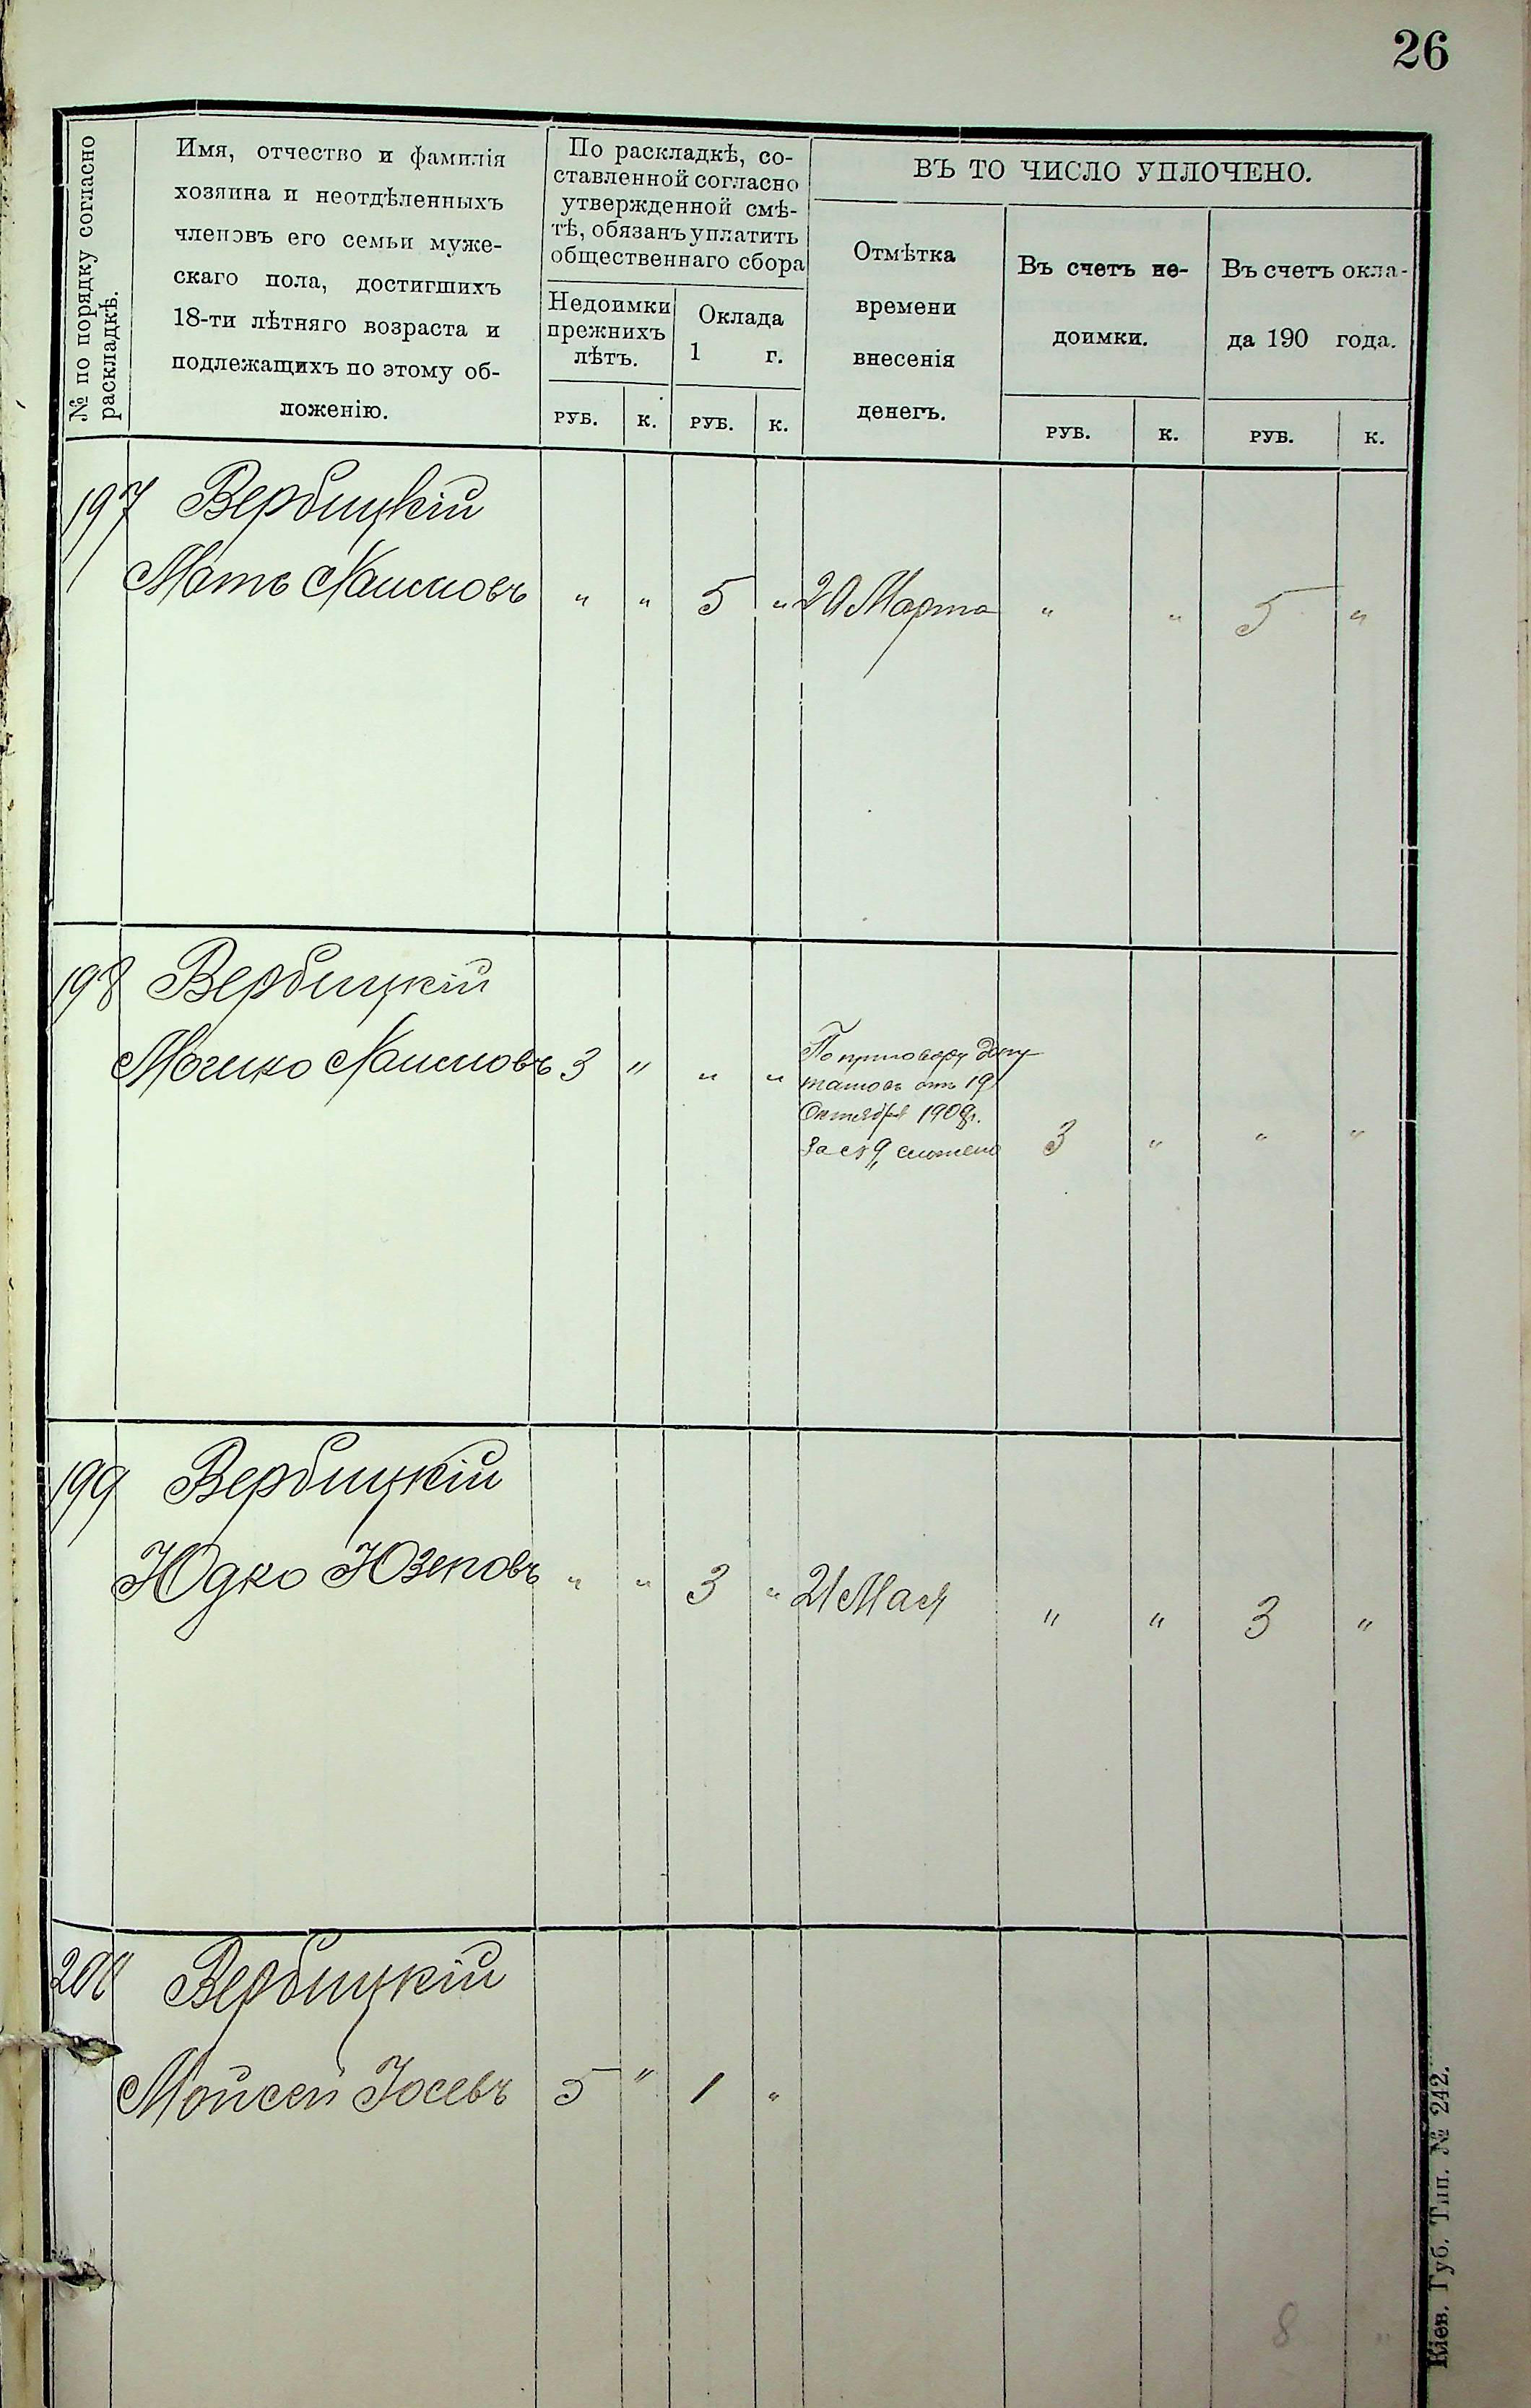 26
№ по порядку согласно
раскладкѣ.
Имя, отчество и фамилія
хозяина и неотдѣленныхъ
членовъ его семьи муже-
скаго пола, достигшихъ
18-ти лѣтняго возраста и
подлежащихъ по этому об-
ложенію.
По раскладкѣ, со-
ставленной согласно
утвержденной смѣ-
тѣ, обязанъ уплатить
общественнаго сбора
Недоимки
прежнихъ
лѣтъ.
Оклада
1 г.
ВЪ ТО ЧИСЛО УПЛОЧЕНО.
Отмѣтка
времени
внесенія
денегъ.
Въ счетъ не-
доимки.
Въ счетъ окла-
да 190 года.
РУБ. К. РУБ. К. РУБ. К. РУБ. К.
197 Вербицкій
Мать Хаимовъ " " 5 " 20 Марта " " 5 "
198 Вербицкій
Мошко Хаимовъ 3 " " "
По приговору депу
татовъ отъ 19
Октября 1908г.
За № 9 сложено 3 " " "
199 Вербицкій
Юдко Юзеповъ " " 3 " 21 Мая " " 3 "
200 Вербицкій
Мойсей Іосевъ 5 " 1 "
8 "
Кіев. Губ. Тип. № 242.